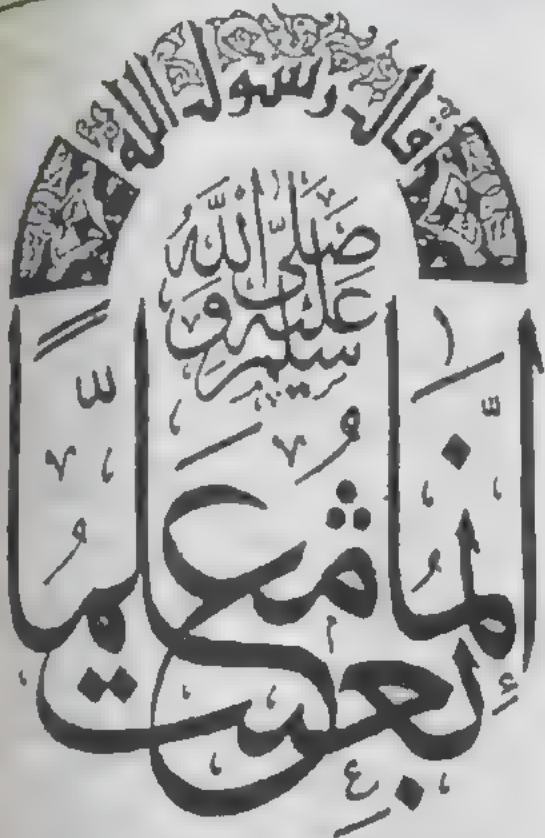 قال رسول الله
صلى الله عليه وسلم
إنما بعثت معلماً